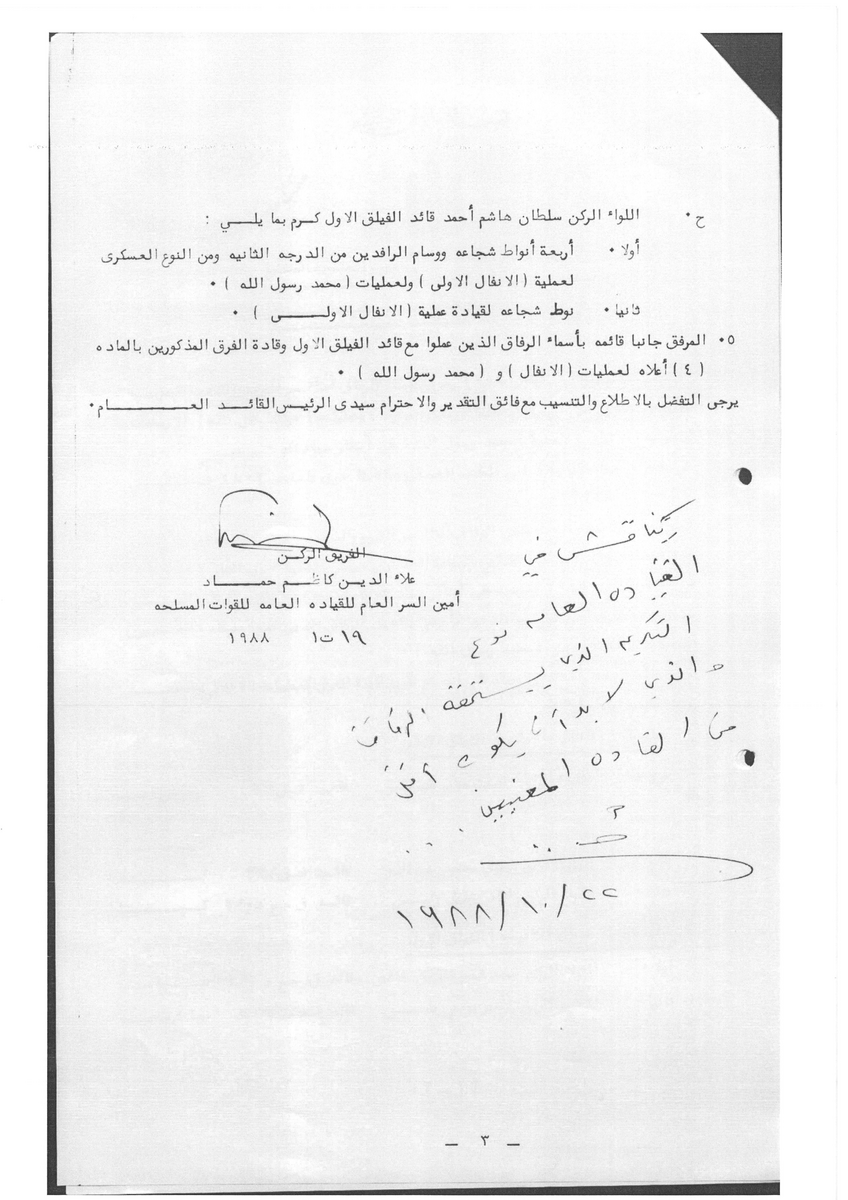 ح٠ اللواء الركن سلطان هاشم أحمد قائد الفيلق الاول كرم بما يلــــي :
أولا٠ أربعة أنواط شجاعه ووسام الرافدين من الدرجه الثانيه ومن النوع العسكرى
لعملية ( الانفال الاولى ) ولعمليات ( محمد رسول الله ) ٠
ثانيا٠ نوط شجاعه لقيادة عملية ( الانفال الاولـــــــى ) ٠
٥٠ المرفق جانبا قائمه بأسماء الرفاق الذين عملوا مع قائد الفيلق الاول وقادة الفرق المذكورين بالماده
( ٤ ) أعلاه لعمليات ( الانفال ) و ( محمد رسول الله ) ٠
يرجى التفضل بالاطلاع والتنسيب مع فائق التقدير والاحترام سيدى الرئيس القائــد العـــــــــام٠
الفريق الركــن
علاء الدين كاظــم حمــــاد
أمين السر العام للقياده العامه للقوات المسلحه
١٩ ت١ ١٩٨٨
يناقش في
القياده العامه نوع
التكريم الذي يستحقه الرفاق
والذي لا بد أن يكون
من القاده المعنيين ...
١٩٨٨/١٠/٢٢
– ٣ –